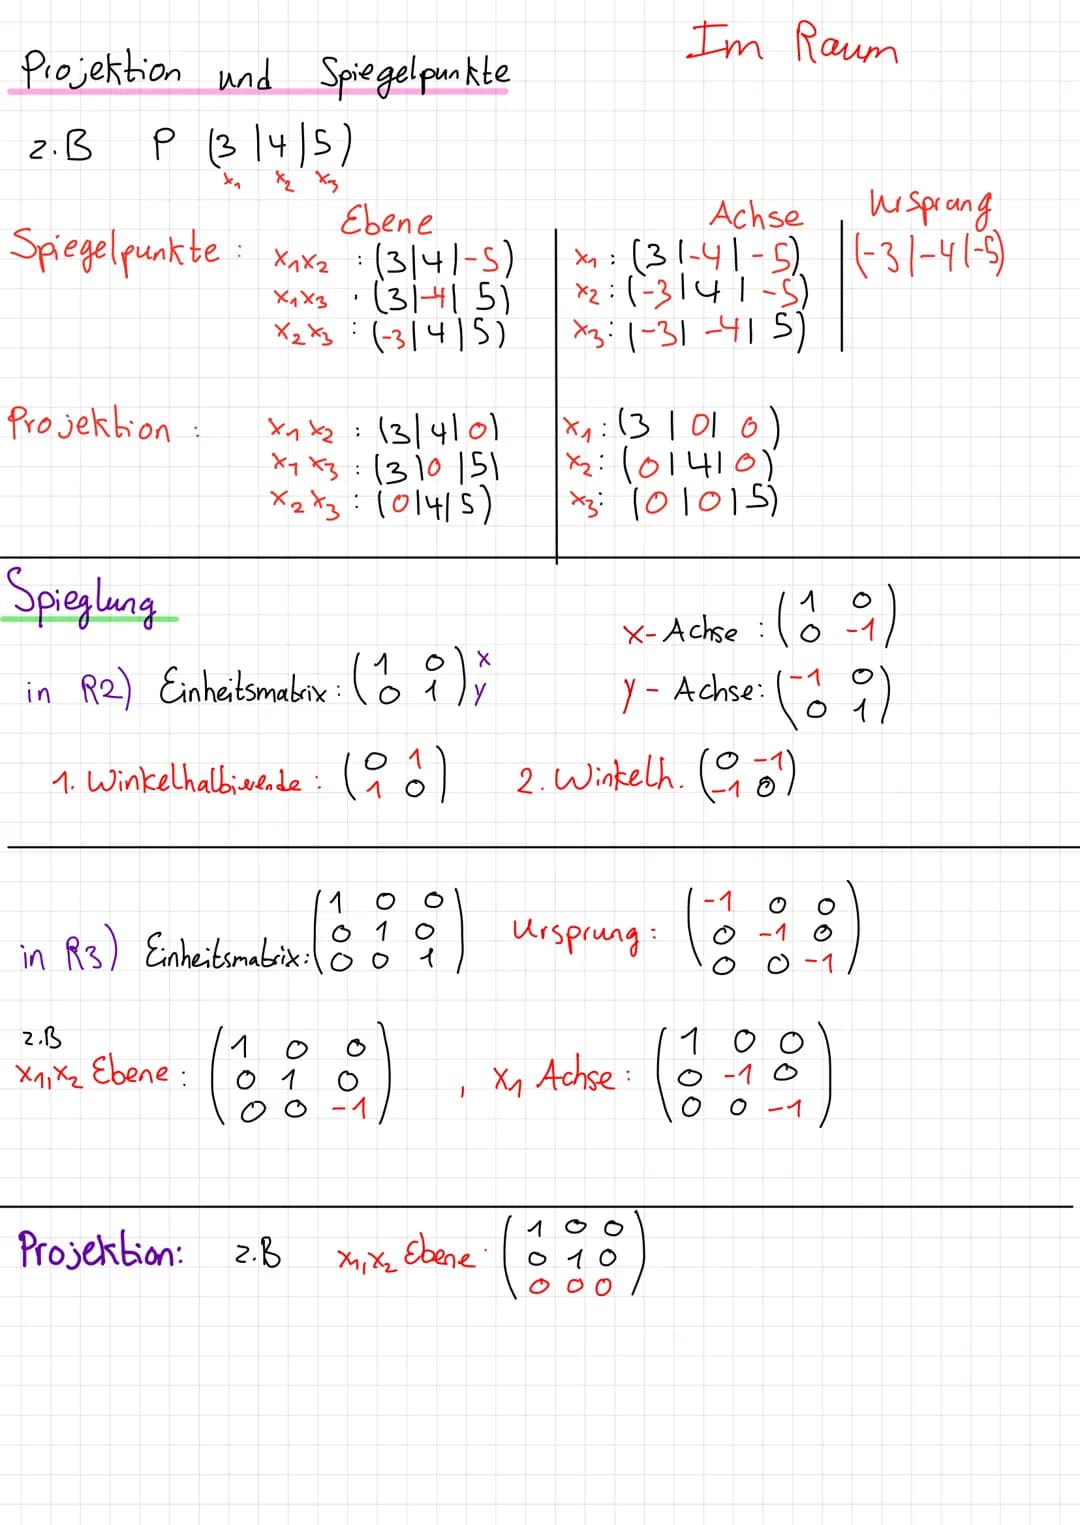 Im Raum
Projektion und Spiegelpunkte
z.B P (3|4|5)
x₁ x₂ x₃
Ebene Achse Ursprung
Spiegelpunkte : x₁x₂ : (3|4|-5) x₁ : (3|-4|-5) (-3|-4|-5)
x₁x₃ : (3|-4|5) x₂ : (-3|4|-5)
x₂x₃ : (-3|4|5) x₃ : (-3|-4|5)
Projektion : x₁x₂ : (3|4|0) x₁ : (3|0|0)
x₁x₃ : (3|0|5) x₂ : (0|4|0)
x₂x₃ : (0|4|5) x₃ : (0|0|5)
Spieglung
x-Achse : (1 0
0 -1)
in R2) Einheitsmatrix : (1 0
0 1) x
y
y-Achse : (-1 0
0 1)
1. Winkelhalbierende : (0 1
1 0)
2. Winkelh. (0 -1
-1 0)
in R3) Einheitsmatrix : (1 0 0
0 1 0
0 0 1)
Ursprung : (-1 0 0
0 -1 0
0 0 -1)
z.B
x₁,x₂ Ebene : (1 0 0
0 1 0
0 0 -1)
, x₁ Achse : (1 0 0
0 -1 0
0 0 -1)
Projektion: z.B x₁,x₂ Ebene : (1 0 0
0 1 0
0 0 0)